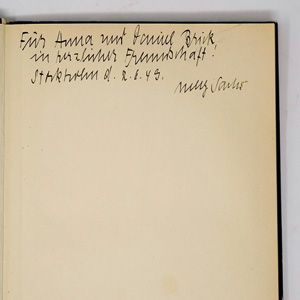 Für Anna und Daniel Brick,
in herzlicher Freundschaft.
Stockholm d. 2.6.49.
Nelly Sachs